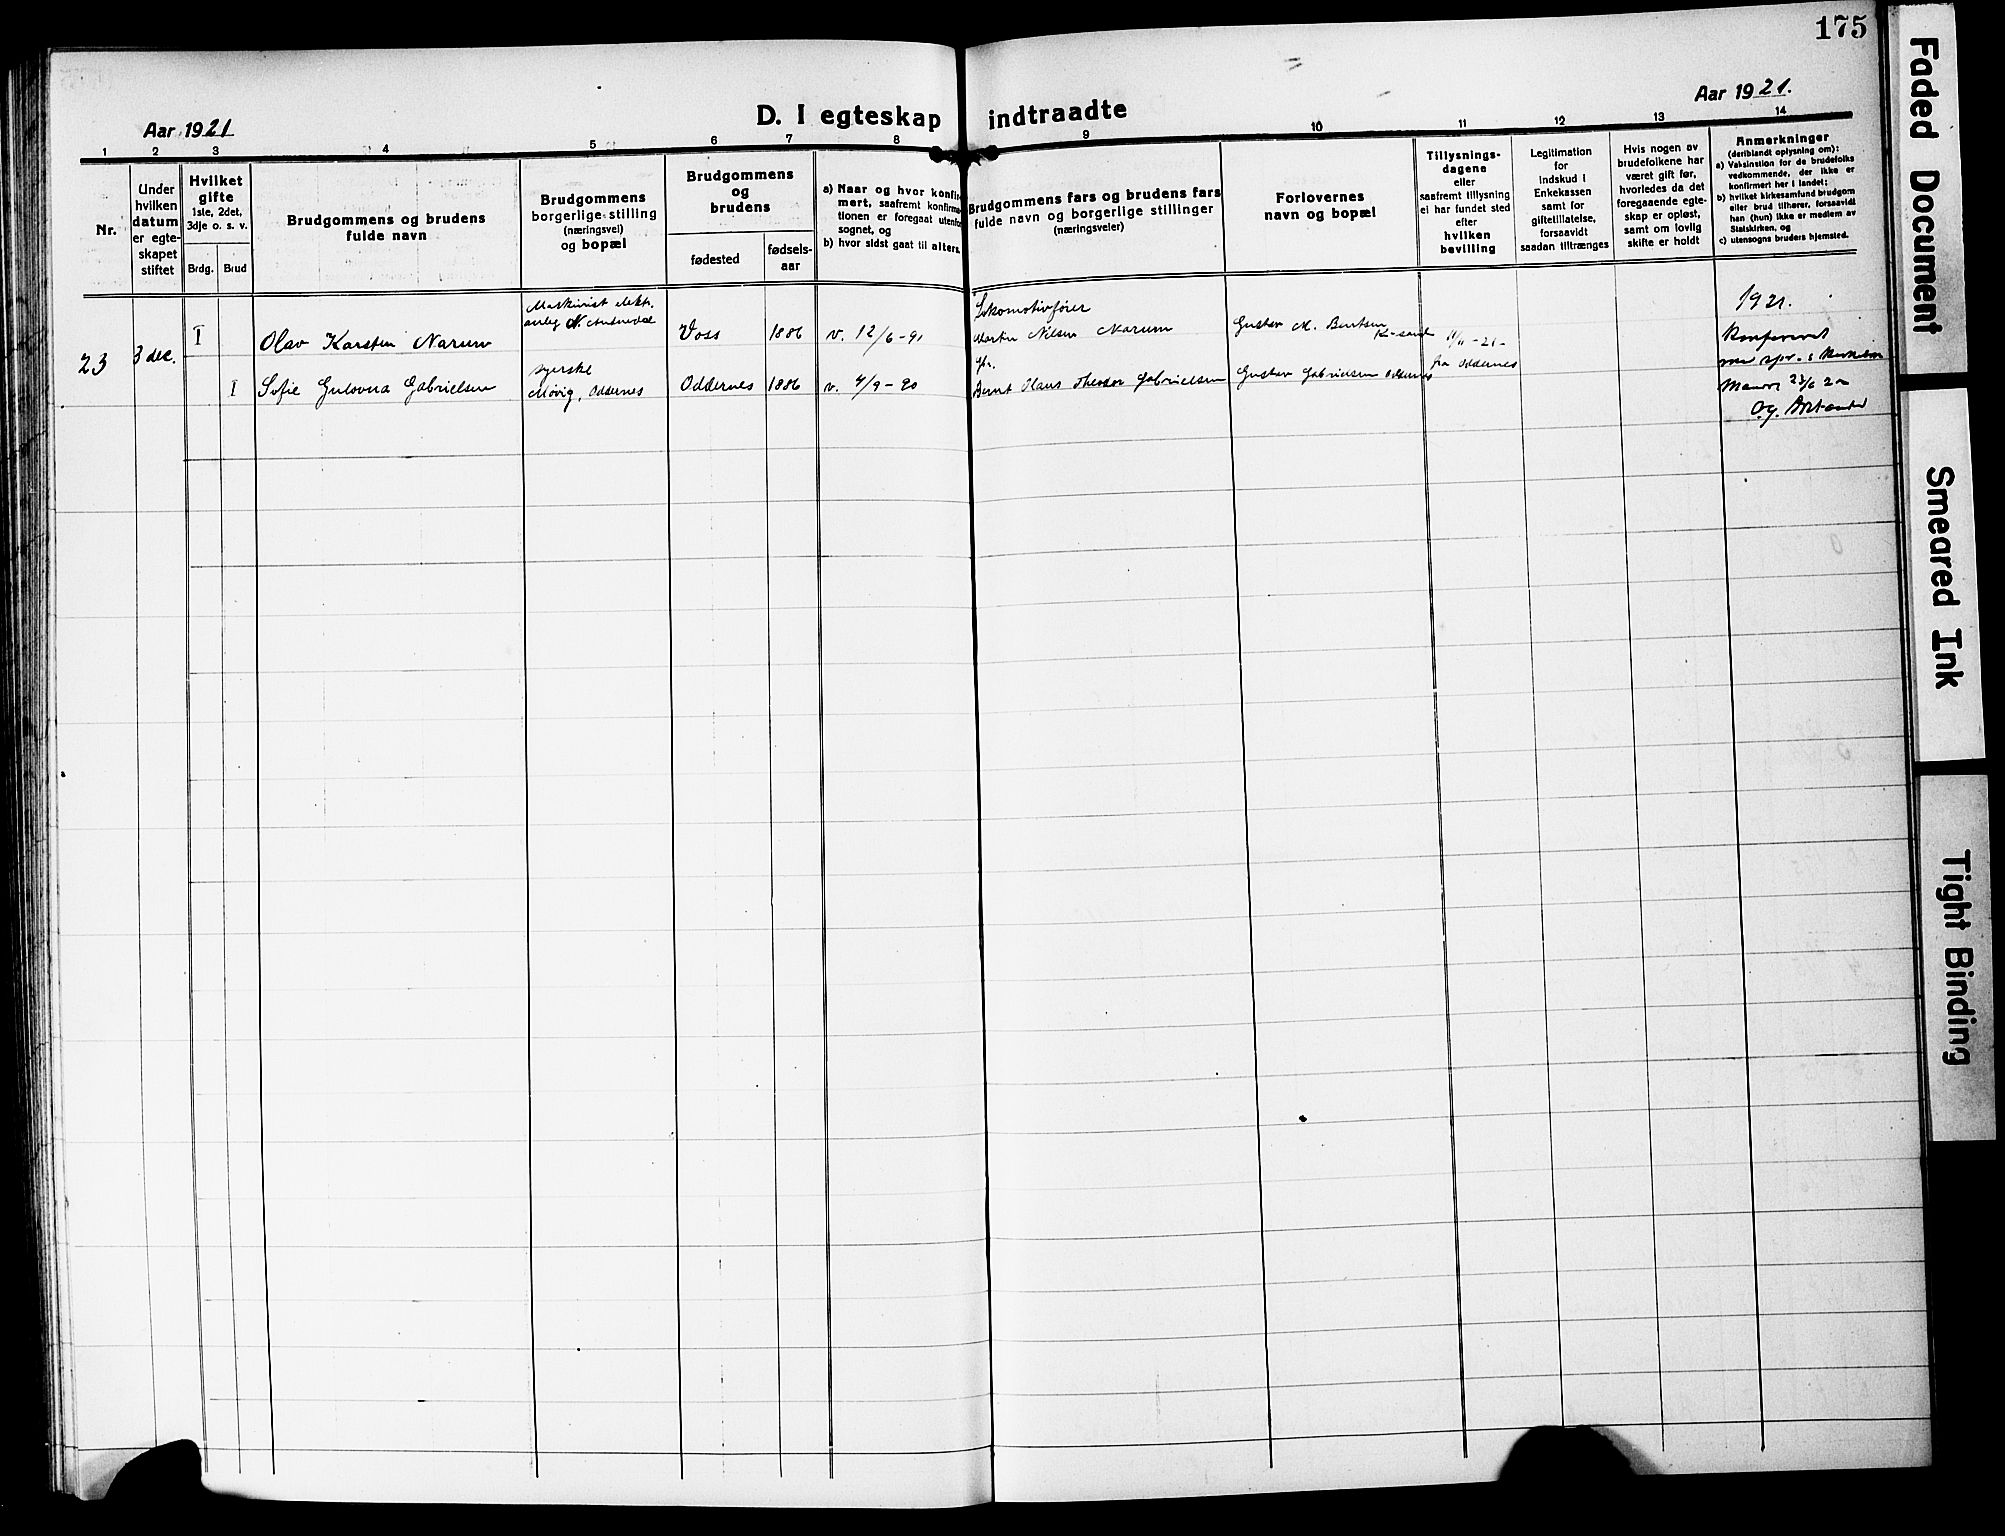 175
Aar 1921
D. I egteskap indtraadte
Aar 1921.
1 2 3 4 5 6 7 8 9 10 11 12 13 14
Nr.
Under
hvilken
datum
er egte-
skapet
stiftet
Hvilket
gifte
1ste, 2det,
3dje o. s. v.
Brdg. Brud
Brudgommens og brudens
fulde navn
Brudgommens
borgerlige stilling
(næringsvei)
og bopæl
Brudgommens
og
brudens
fødested
fødsels-
aar
a) Naar og hvor konfir-
mert, saafremt konfirma-
tionen er foregaat utenfor
sognet, og
b) hvor sidst gaat til alters.
Brudgommens fars og brudens fars
fulde navn og borgerlige stillinger
(næringsveier)
Forlovernes
navn og bopæl
Tillysnings-
dagene
eller
saafremt tillysning
ei har fundet sted
efter
hvilken
bevilling
Legitimation
for
indskud i
Enkekassen
samt for
giftetillatelse,
forsaavidt
saadan tiltrænges
Hvis nogen av
brudefolkene har
været gift før,
hvorledes da det
foregaaende egte-
skap er opløst,
samt om lovlig
skifte er holdt
Anmerkninger
(deriblandt oplysning om):
a) Vaksination for de brudefolks
vedkommende, der ikke er
konfirmert her i landet;
b) hvilket kirkesamfund brudgom
eller brud tilhører, forsaavidt
han (hun) ikke er medlem av
Statskirken, og
c) utensogns bruders hjemsted.
23 3 dec.
I Olav Karsten Narum
Maskinist elektr.
anlæg N.
Voss 1886 v. 12/6-91
Lokomotivfører
Martin Nilsen Narum
Gustav M. Bentsen
K-sand
11/11-21-
fra Oddernes
I Sofie Gulovna Gabrielsen
syerske
Møvig, Oddernes
Oddernes 1886 v. 4/9-90
Bernt Hans Theodor Gabrielsen
Gustav Gabrielsen Oddernes
1921.
Konferert
Mandal 23/6 22
Faded Document
Smeared Ink
Tight Binding